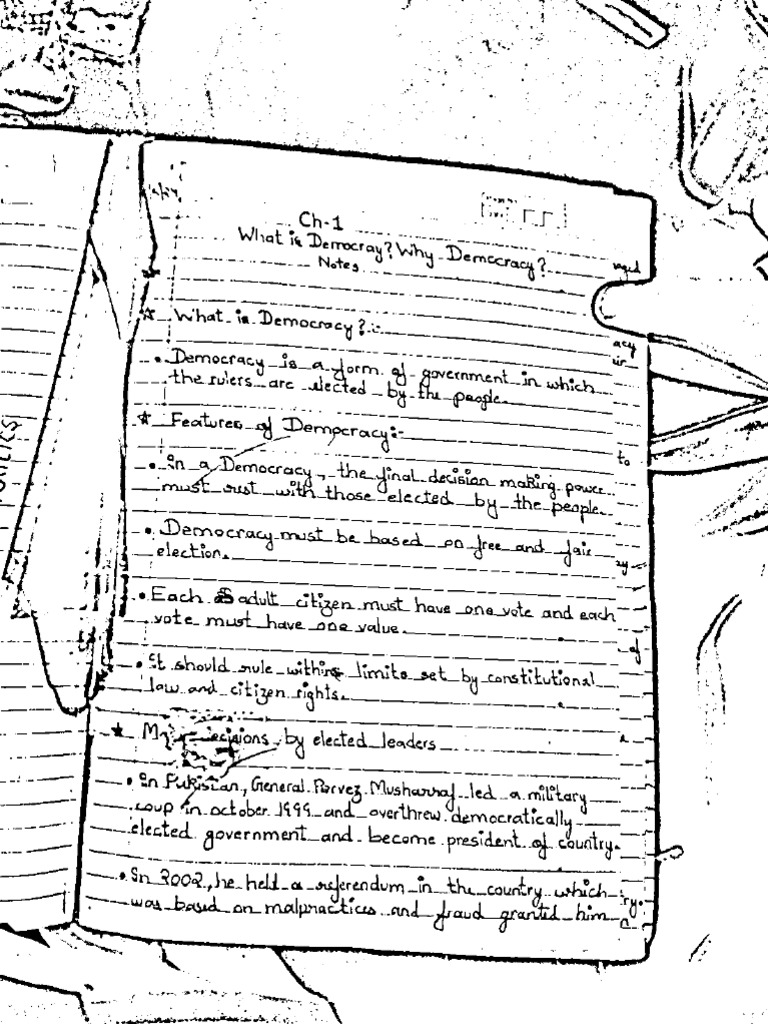 Ch-1
What is Democray? Why Democracy?
Notes
☆ What is Democracy? :-
• Democracy is a form of government in which
the rulers are elected by the people.
☆ Features of Democracy:-
• in a Democracy, the final decision making power
must rest with those elected by the people.
• Democracy must be based on free and fair
election.
• Each adult citizen must have one vote and each
vote must have one value.
• it should rule within limits set by constitutional
law and citizen rights.
★ decisions by elected leaders
• in Pakistan, General Parvez Musharraf led a military
coup in october 1999 and overthrew democratically
elected government and become president of country.
• In 2002, he held a referendum in the country which
was based on malpractices and fraud granted him